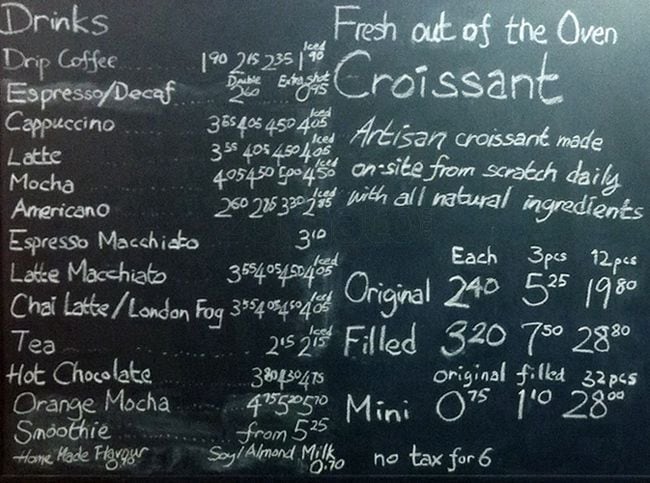 Drinks
Drip Coffee 1 90 2 15 2 35 Iced 1 90
Double Extra shot
Espresso/Decaf 2 60 0 95
Cappuccino 3 55 4 05 4 50 Iced 4 05
Latte 3 55 4 05 4 50 Iced 4 05
Mocha 4 05 4 50 5 00 Iced 4 50
Americano 2 60 2 85 3 30 Iced 2 85
Espresso Macchiato 3 10
Latte Macchiato 3 55 4 05 4 50 Iced 4 05
Chai Latte/London Fog 3 55 4 05 4 50 Iced 4 05
Tea 2 15 Iced 2 15
Hot Chocolate 3 80 4 30 4 75
Orange Mocha 4 75 5 20 5 70
Smoothie from 5 25
Home Made Flavour Soy/Almond Milk
0.70
Fresh out of the Oven
Croissant
Artisan croissant made
on-site from scratch daily
with all natural ingredients
Each 3pcs 12pcs
Original 2 40 5 25 19 80
Filled 3 20 7 50 28 80
original filled 32pcs
Mini 0 75 1 10 28 00
no tax for 6